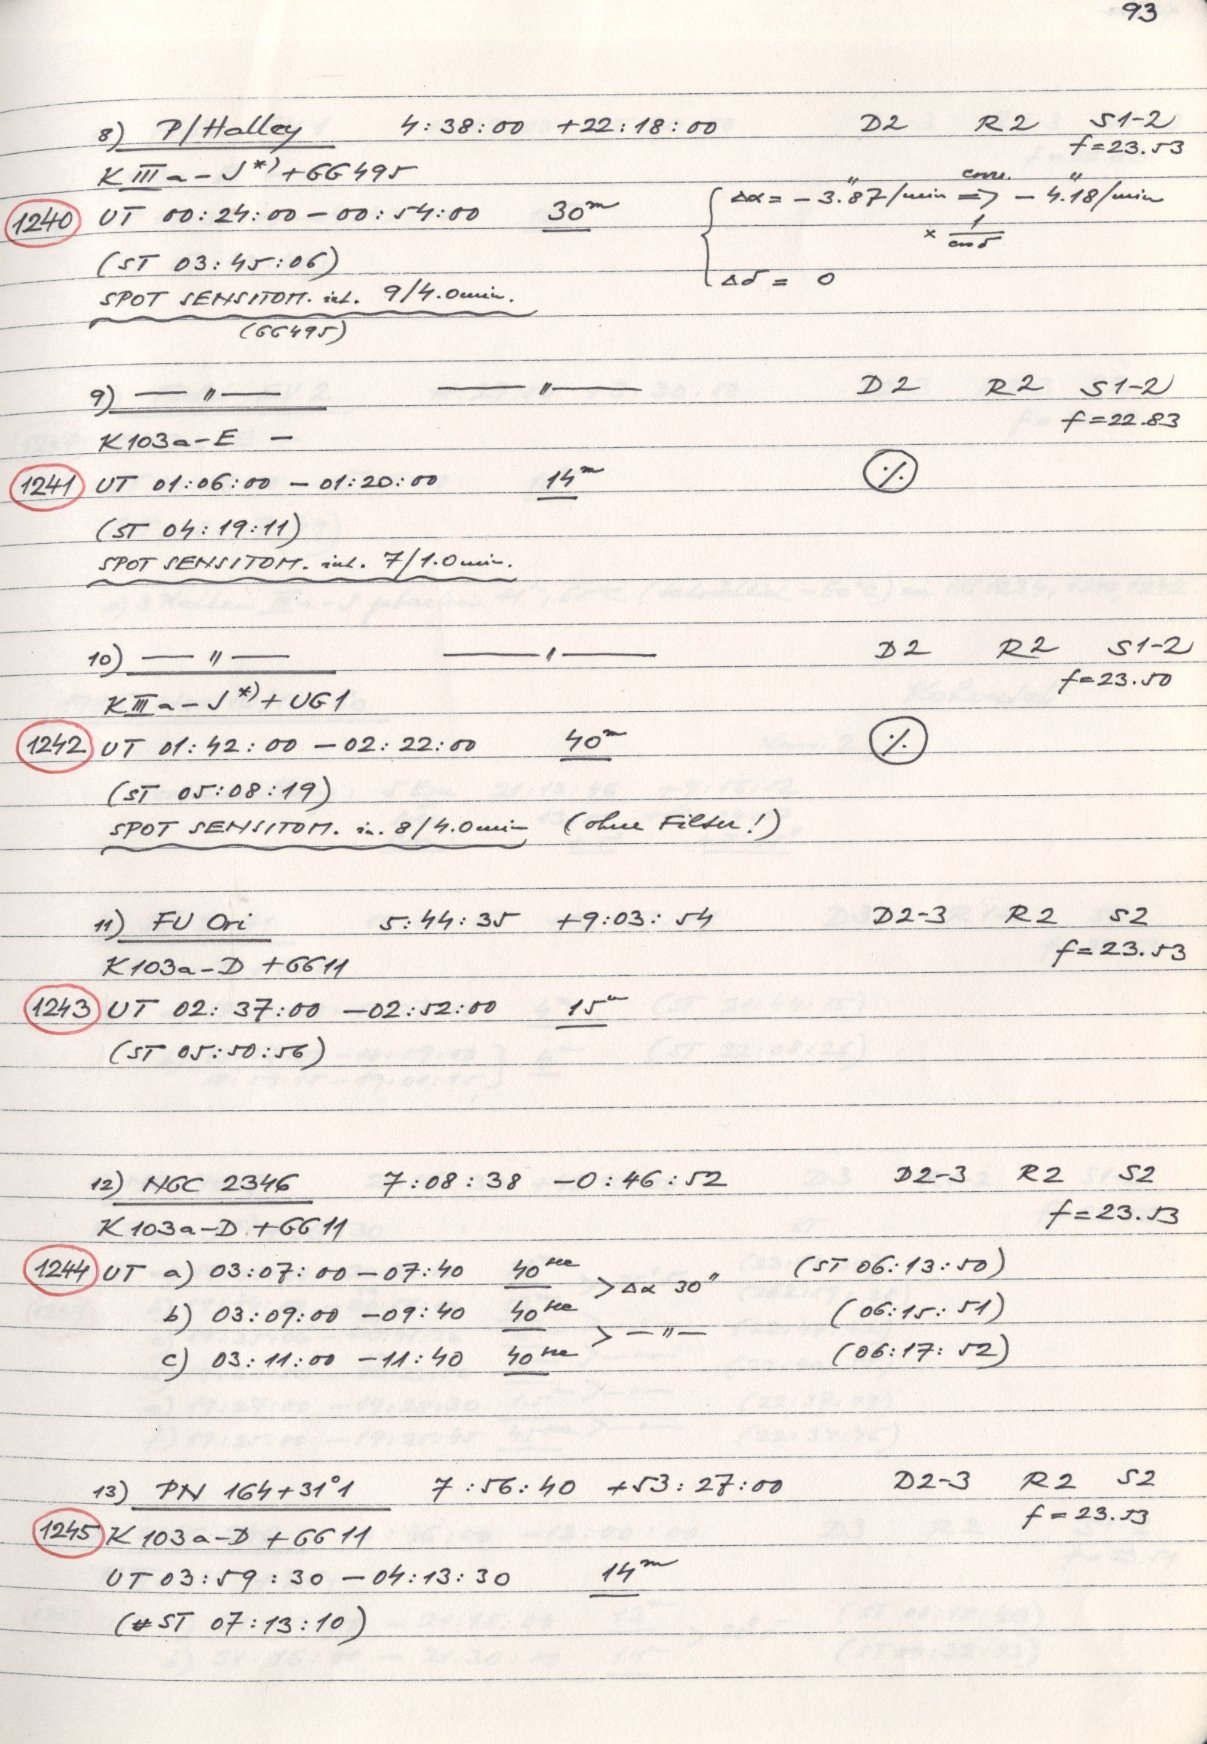 93
8) P/Halley 4:38:00 +22:18:00 D2 R2 S1-2
f=23.53
K IIIa-J *) +GG495
1240 UT 00:24:00 - 00:54:00 30m
Δα = - 3".87/min corr. => - 4".18/min
× 1/cosδ
Δδ = 0
(ST 03:45:06)
SPOT SENSITOM. int. 9/4.0min.
(GG495)
9) — " — — " — D2 R2 S1-2
f=22.83
K103a-E —
1241 UT 01:06:00 - 01:20:00 14m ·/.
(ST 04:19:11)
SPOT SENSITOM. int. 7/1.0min.
10) — " — — " — D2 R2 S1-2
f=23.50
K IIIa-J *) + UG1
1242 UT 01:42:00 - 02:22:00 40m ·/.
(ST 05:08:19)
SPOT SENSITOM. in. 8/4.0min (ohne Filter!)
11) FU Ori 5:44:35 +9:03:54 D2-3 R2 S2
f=23.53
K103a-D +GG11
1243 UT 02:37:00 - 02:52:00 15m
(ST 05:50:56)
12) NGC 2346 7:08:38 -0:46:52 D2-3 R2 S2
f=23.53
K103a-D +GG11
1244 UT a) 03:07:00 - 07:40 40sec > Δα 30" (ST 06:13:50)
b) 03:09:00 - 09:40 40sec > — " — (06:15:51)
c) 03:11:00 - 11:40 40sec (06:17:52)
13) PN 164+31°1 7:56:40 +53:27:00 D2-3 R2 S2
f=23.53
1245 K103a-D +GG11
UT 03:59:30 - 04:13:30 14m
(ST 07:13:10)